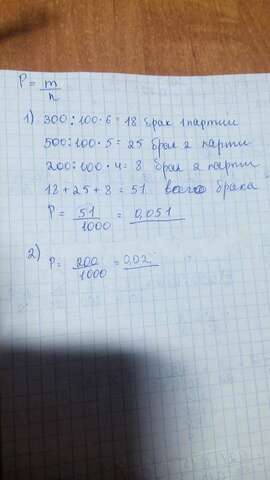 P = m/n
1) 300:100·6 = 18 брак 1 партии
500:100·5 = 25 брак 2 парти
200:100·4 = 8 брак 2 парти
18 + 25 + 8 = 51 всего брака
P = 51/1000 = 0,051
2) P = 200/1000 = 0,02